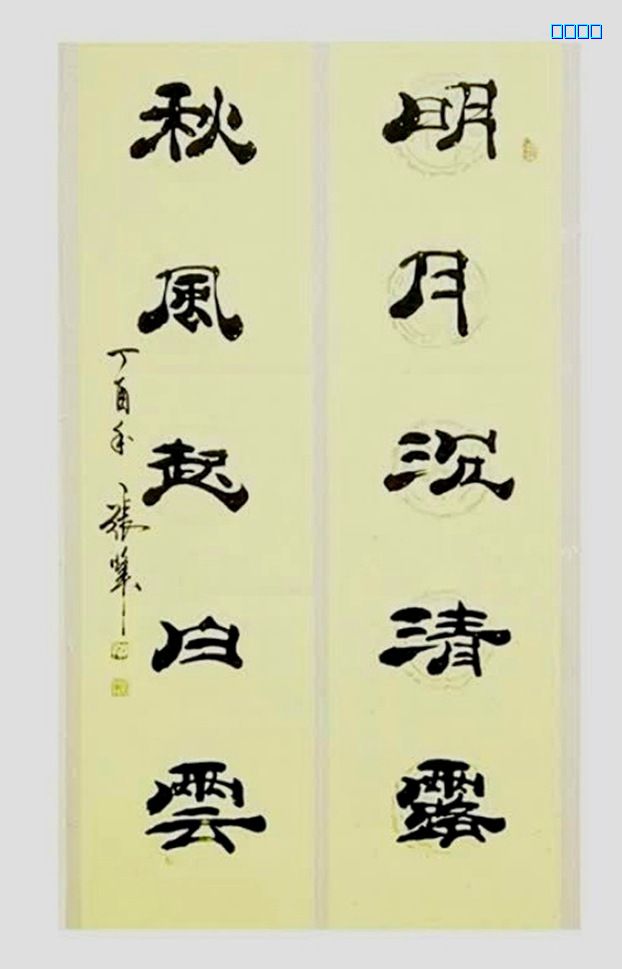 明月沉清露
秋風起白雲
丁酉年 張犖